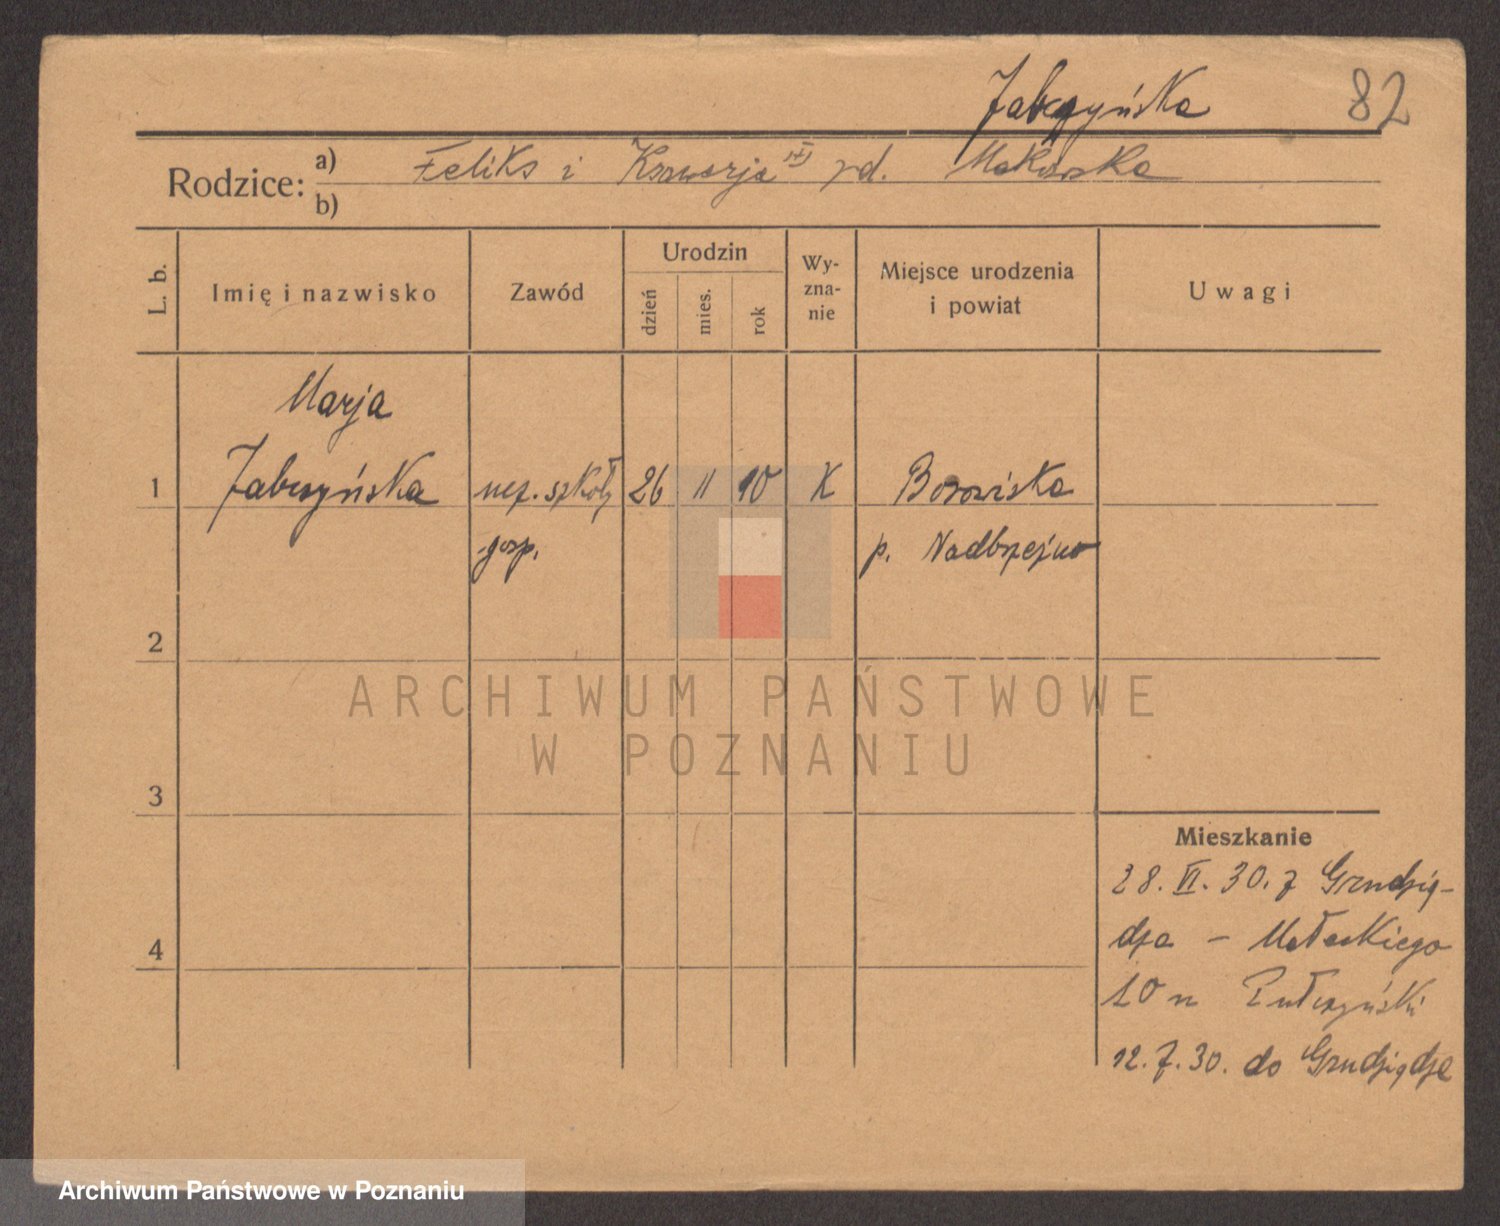 Jabczyńska
82
Rodzice:
a) Feliks i Ksawerja zd. Makowska
b)
L. b.
Imię i nazwisko
Zawód
Urodzin
dzień
mies.
rok
Wy-
zna-
nie
Miejsce urodzenia
i powiat
Uwagi
Marja
1 Jabczyńska naucz. szkoły 26 11 10 K Borowiska
gosp. p. Nadbrzejno
2
3
4
Mieszkanie
28. VI. 30. z Grudzią-
dza - Małeckiego
10 n Pułczyński
12. 7. 30. do Grudziądza
ARCHIWUM PAŃSTWOWE
W POZNANIU
Archiwum Państwowe w Poznaniu